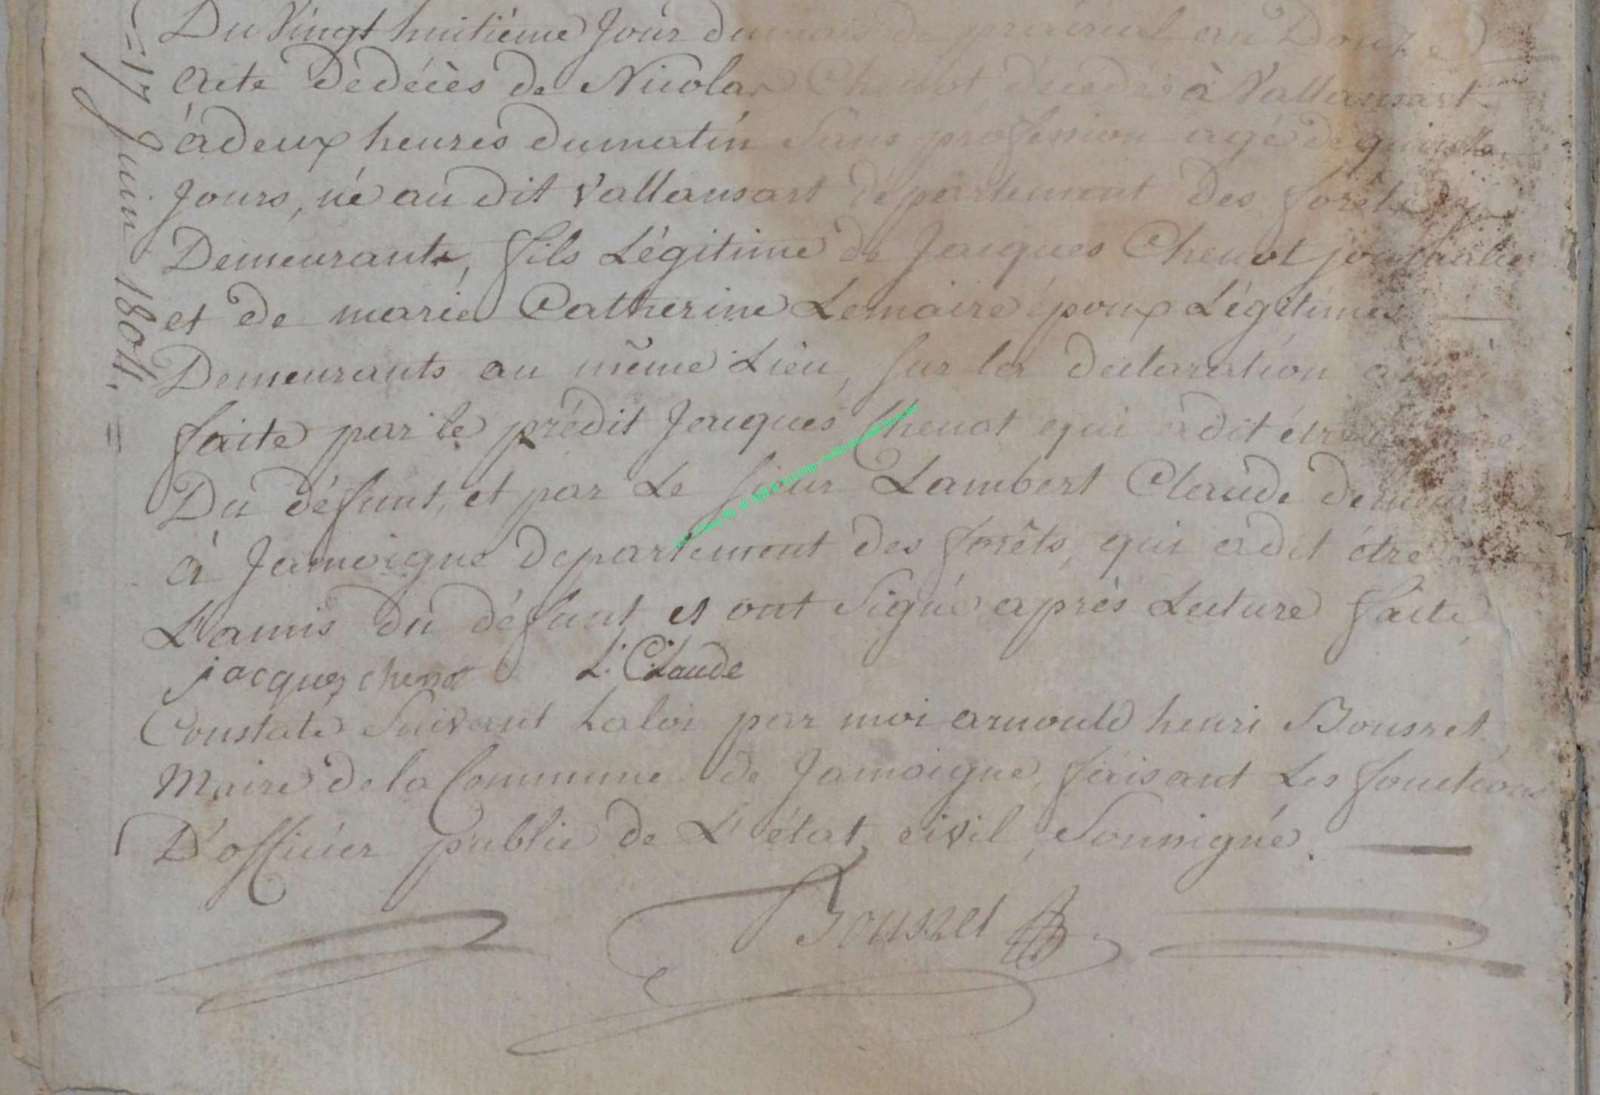 = 17 Juin 1804. =
Du Vingt huitiéme Jour du mois de prairial an Douze
Acte Dedécès de Nicolas Chenot, décédé à Vallansart
à deux heures dumatin Sans profession agé de quinze
Jours, né au dit Vallansart département des forêts, y
Demeurants, fils Légitime de Jacques Chenot journalier
et de marie Catherine Lemaire époux Légitimes
Demeurants au même Lieu, sur la declaration a moi
faite par le prédit Jacques Chenot qui a dit être
Du défunt, et par Le sieur Lambert Claude demeurant
à Jamoigne departement des forêts, qui adit étre
L'amis du défunt et ont Signé après Lecture faite
jacques chenot L. Claude
Constaté Suivant Laloi par moi arnould henri Bousret
Maire de la Commune de Jamoigne, faisant Les fonctions
D'officier public de L'état civil, Soussigné.
Bousret